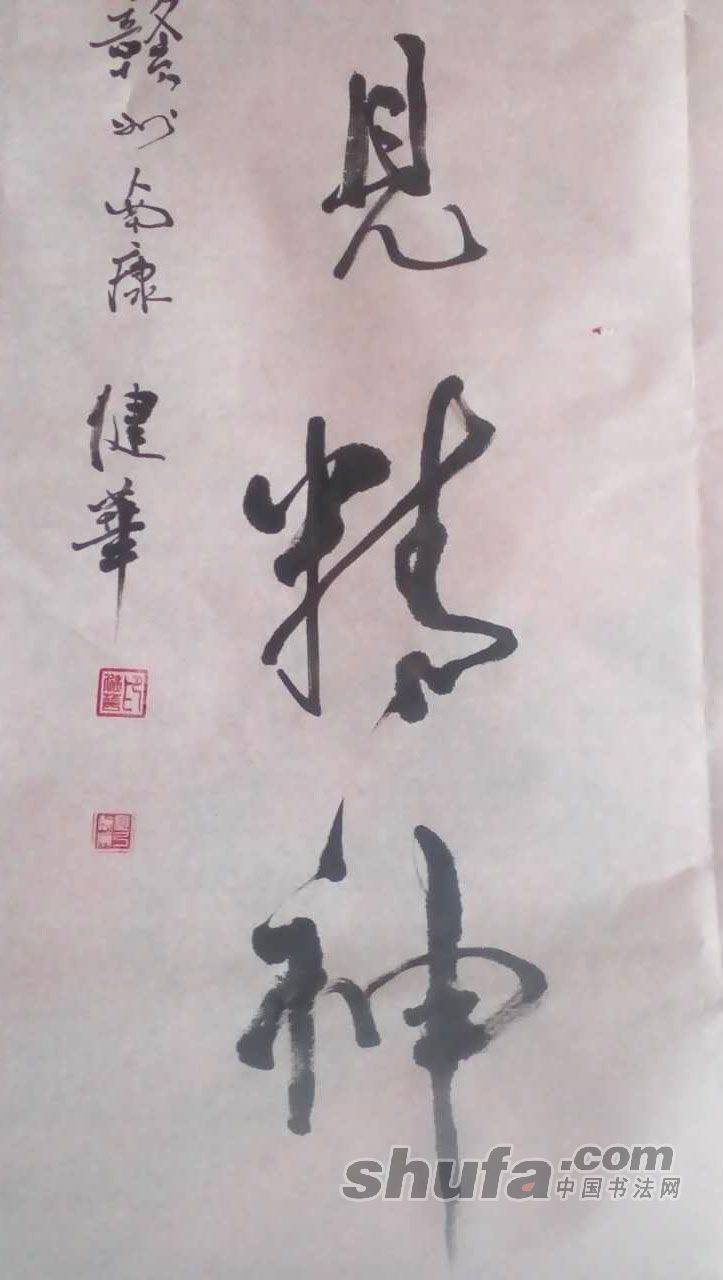 見精神
贛州南康 健華
shufa.com
中国书法网